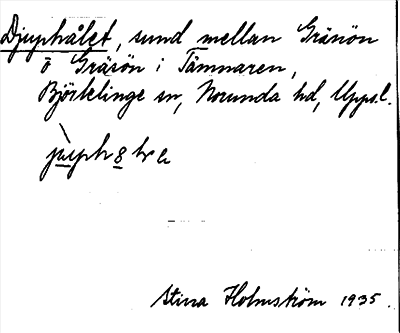 Djuphålet, sund mellan Gränön
o Gräsön i Tämnaren,
Björklinge sn, Norunda hd, Upps.l.
Stina Holmström 1935.